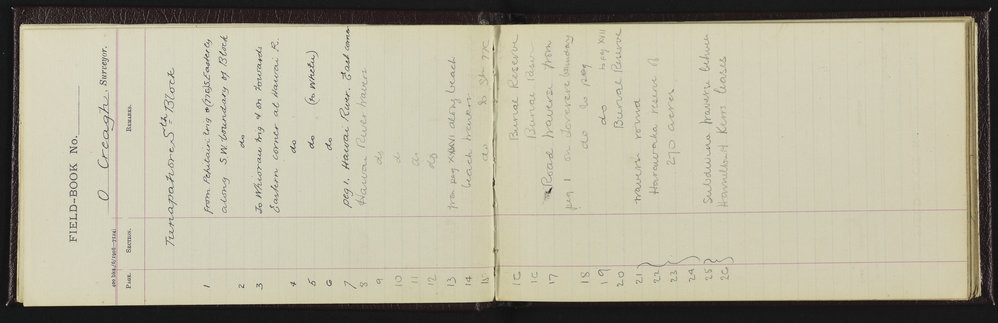 FIELD-BOOK No.
O Creagh, Surveyor.
PAGE. SECTION. REMARKS.
Tunapahore 5th Block
1 from Pehitairi trig & (pe) S. Easterly
along S.W boundary of Block
2 do
3 To Whiorau trig & on towards
Eastern corner at Hawai R.
4 do
5 do (to Whetu)
6 do
7 peg 1. Hawai River. East corner
8 Hawai River traverse
9 do
10 do
11 do
12 do
13 from peg XXXVI along beach
14 beach traverse
15 do to Stn
16 Burial Reserve
16 Burial Reserve
17 Road traverse from
peg 1 on reserve boundary
18 do to peg
19 do to peg XVIII
20 Burial Reserve
21 traverse round
22 Harawaka reserve of
23 270 acres
24
25 Subdivision traverse between
26 Kerrs leases